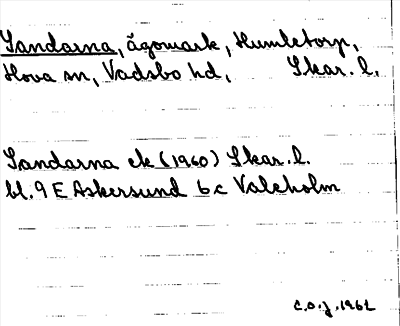 Sandarna, ägomark, Humletorp,
Hova sn, Vadsbo hd, Skar. l.
Sandarna ek (1960) Skar. l.
bl. 9 E Askersund 6 c Valeholm
C.O.J. 1962